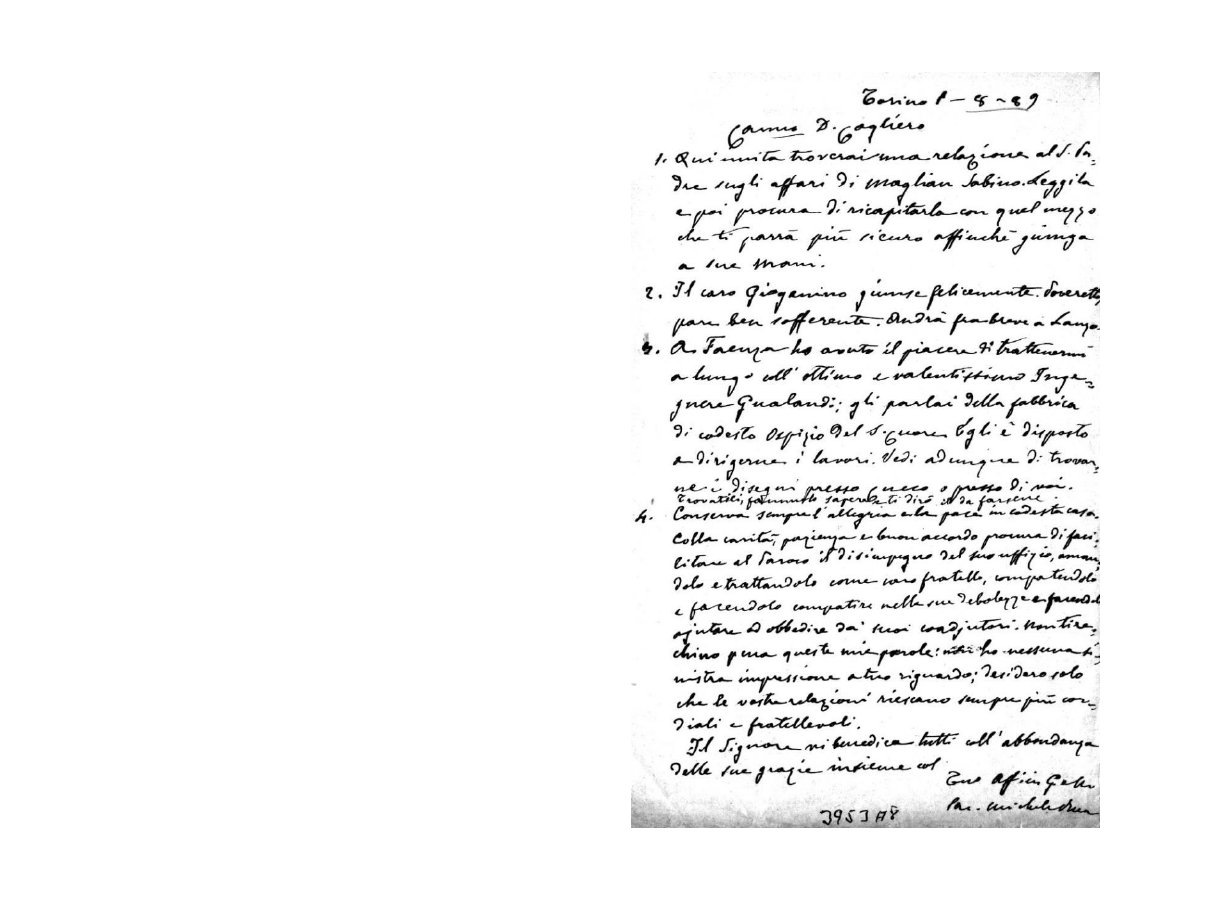 Torino 1-8-89
Car.mo D. Cagliero
1. Qui unita troverai una relazione al S. Pa=
dre sugli affari di Maglian Sabino. Leggila
e poi procura di ricapitarla con quel mezzo
che ti parrà più sicuro affinchè giunga
a sue mani.
2. Il caro giunse felicemente.
pare ben sofferente. Andrà fra breve a Lanzo.
3. A Faenza ho avuto il piacere di trattenermi
a lungo coll' ottimo e valentissimo Inge=
gnere Gualandi; gli parlai della fabbrica
di codesto Ospizio del S. Cuore. Egli è disposto
a dirigerne i lavori. Vedi adunque di trovar=
ne i disegni presso Cucco o presso di voi.
Trovatili, fammelo sapere e ti dirò il da farsene.
4. Conserva sempre l'allegria e la pace in codesta casa.
Colla carità, pazienza e buon accordo procura di faci=
litare al Paroco il disimpegno del suo uffizio, aman=
dolo e trattandolo come caro fratello, compatendolo
e facendolo compatire nelle sue debolezze e facendolo
ajutare ed obbedire da' suoi coadjutori. Non ti rec=
chino pena queste mie parole: non ho nessuna si=
nistra impressione a tuo riguardo; desidero solo
che le vostre relazioni riescano sempre più cor=
diali e fratellevoli.
Il Signore vi benedica tutti coll' abbondanza
delle sue grazie insieme col
Tuo Aff in G. e M.
Sac. Michele Rua
3953 A8